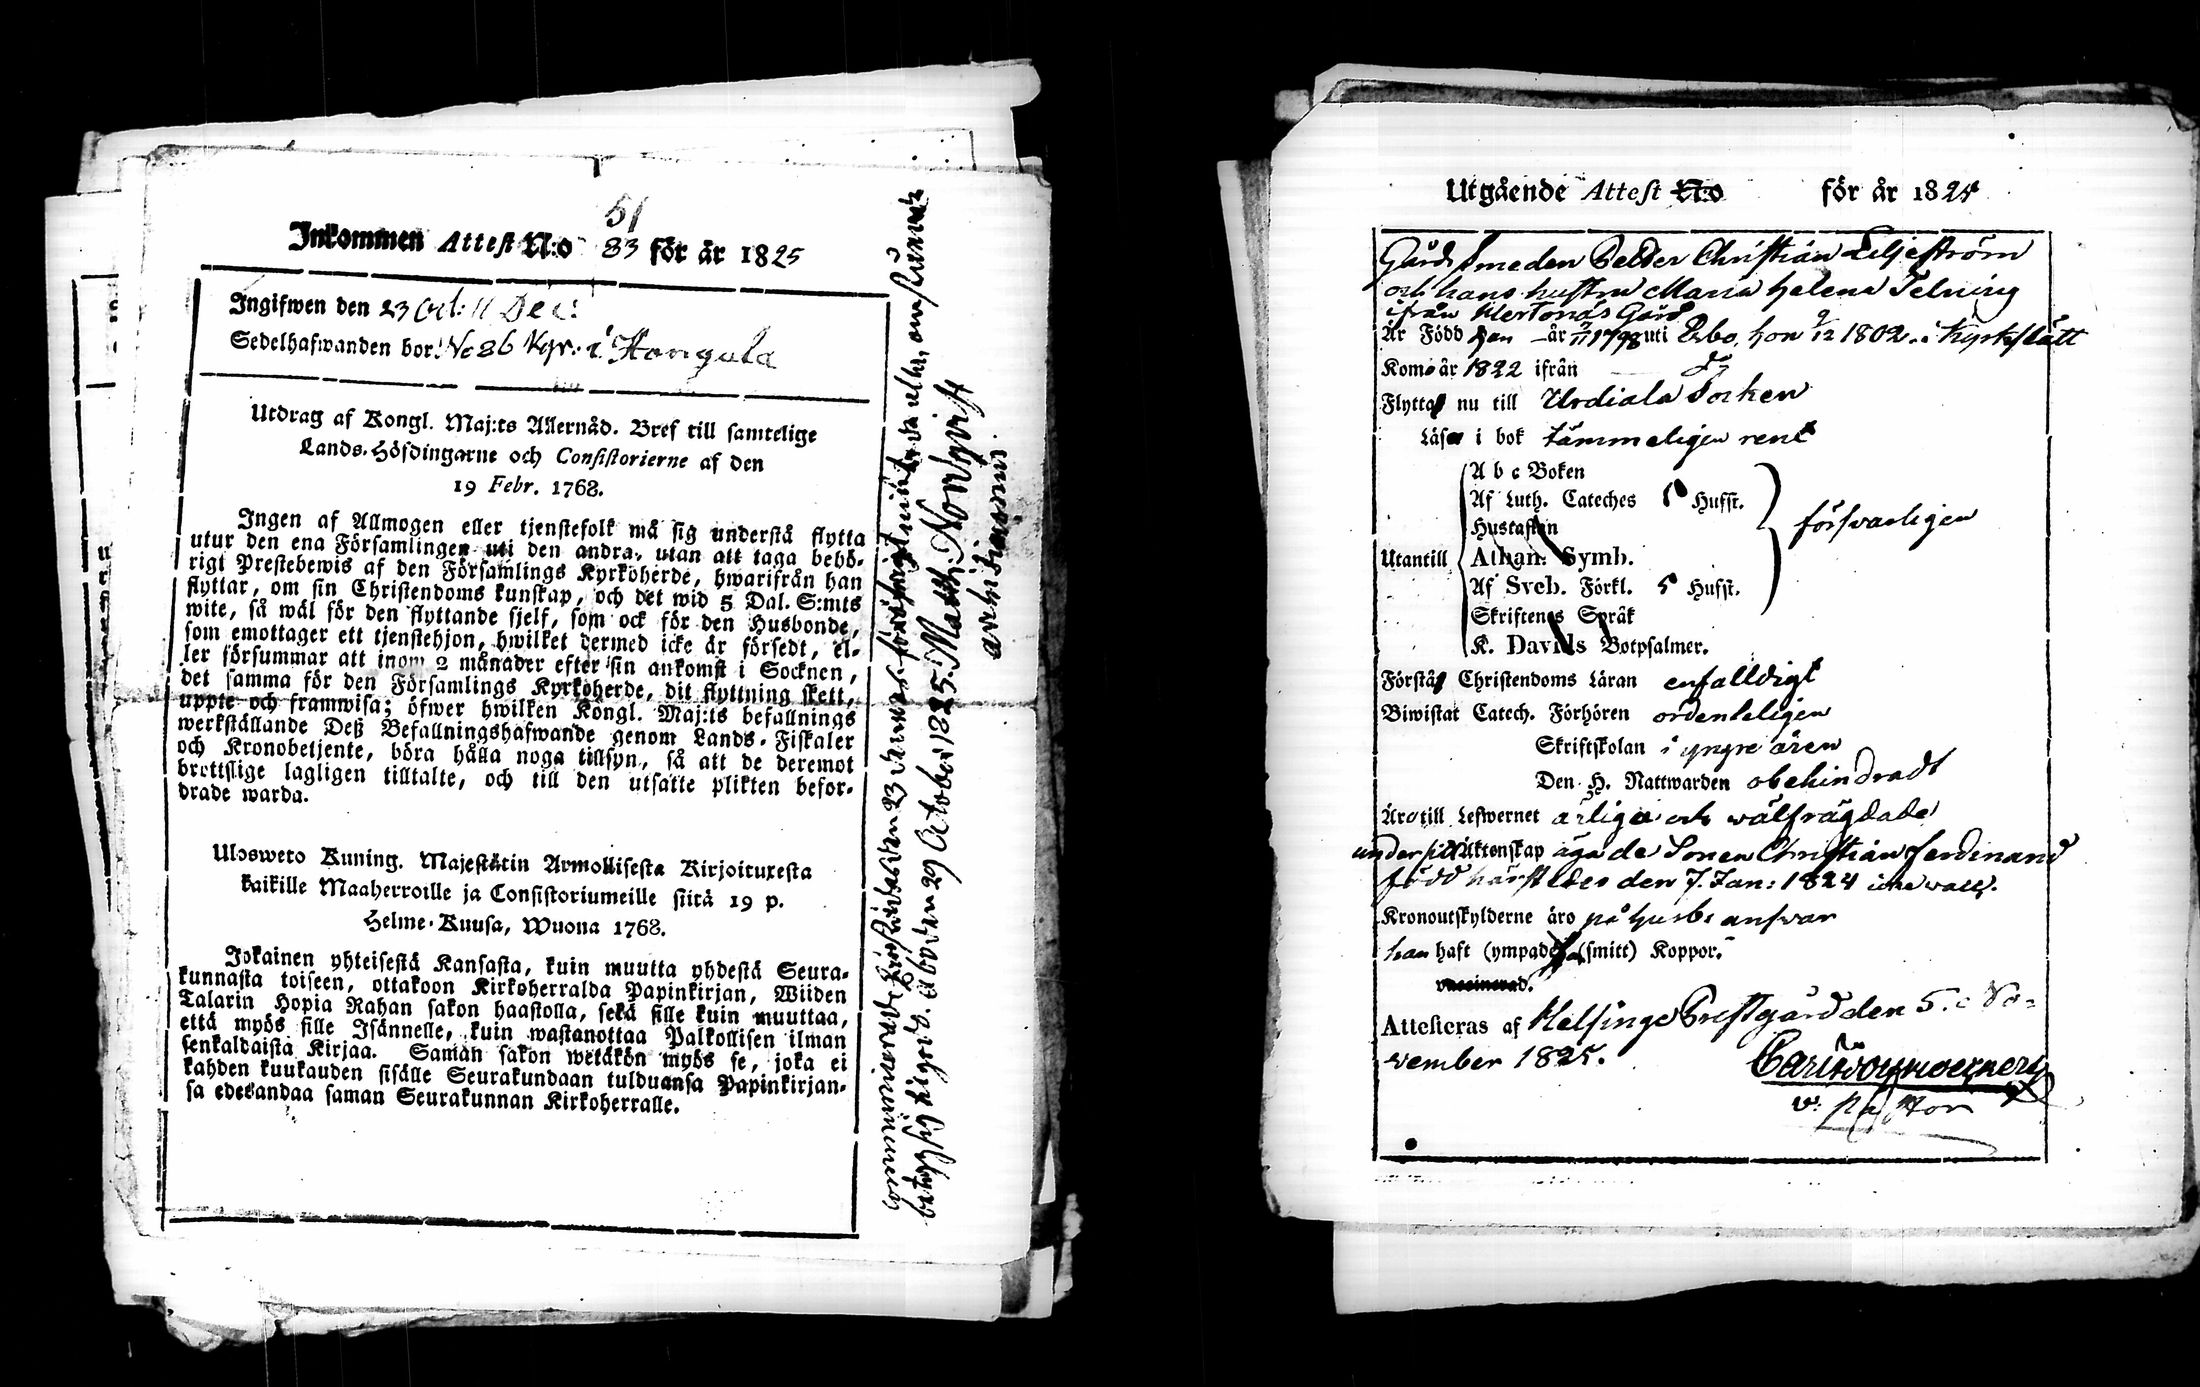 51
Inkommen Attest N:o 83 för år 1825
Ingifwen den 23 Oct: 11 Dec:
Sedelhafwanden bor: No 26 Kyr. i Kongala
Utdrag af Kongl. Maj:ts Allernåd. Bref till samtelige
Lands-Höfdingarne och Consistorierne af den
19 Febr. 1768.
Ingen af Allmogen eller tjenstefolk må sig understå flytta
utur den ena Församlingen uti den andra, utan att taga behö-
rigt Prestebewis af den Församlings Kyrkoherde, hwarifrån han
flyttar, om sin Christendoms kunskap, och det wid 5 Dal. S:mts
wite, så wäl för den flyttande sjelf, som ock för den Husbonde,
som emottager ett tjenstehjon, hwilket dermed icke är försedt, el-
ler försummar att inom 2 månader efter sin ankomst i Socknen,
det samma för den Församlings Kyrkoherde, dit flyttning skett,
uppte och framwisa; öfwer hwilken Kongl. Maj:ts befallnings
werkställande Deß Befallningshafwande genom Lands-Fiskaler
och Kronobetjente, böra hålla noga tillsyn, så att de deremot
brottslige lagligen tilltalte, och till den utsatte plikten befor-
drade warda.
Ulosweto Kuning. Majestätin Armollisesta Kirjoituxesta
kaikille Maaherroille ja Consistoriumeille siitä 19 p.
Helme-Kuusa, Wuona 1768.
Jokainen yhteisestä Kansasta, kuin muutta yhdestä Seura-
kunnasta toiseen, ottakoon Kirkoherralda Papinkirjan, Wiiden
Talarin Hopia Rahan sakon haastolla, sekä sille kuin muuttaa,
että myös sille Isännelle, kuin wastanottaa Palkollisen ilman
senkaldaista Kirjaa. Saman sakon wetäkön myös se, joka ei
kahden kuukauden sisälle Seurakundaan tulduansa Papinkirjan-
sa edesandaa saman Seurakunnan Kirkoherralle.
betygh sig Åbo den 29 October 1825. Matth: Nordqvist
Utgående Attest N:o för år 1825
Gårds smeden Petter Christian Liljeström
och hans hustru Maria Helena Telning
ifrån Hertonäs Gård
Är Född han år 1798 uti Esbo, hon 9/12 1802 i Kyrkslätt
Kom år 1822 ifrån d:o
Flytta nu till Urdiala Socken
Läsa i bok tämmeligen rent
A b c Boken
Af Luth. Cateches 5 Hufst.
Hustaflan
Utantill Athan. Symb. försvarligen
Af Sveb. Förkl. 5 Hufst.
Skriftenes Språk
K. Davids Botpsalmer.
Förstå Christendoms Läran enfalldigt
Biwistat Catech. Förhören ordenteligen
Skriftskolan i yngre åren
Den H. Nattwarden obehindradt
Äro till Lefwernet ärliga och wälfrägdade
under sitt Äktenskap äga de Sonen Christian Ferdinand
född härstädes den 7. Jan: 1824 icke vacc.
Kronoutskylderne äro på husbs answar
han haft (ympade) (smitt) Koppor.
vaccinerad.
Attesteras af Helsinge Prestgård den 5. No-
vember 1825.
v: Pastor